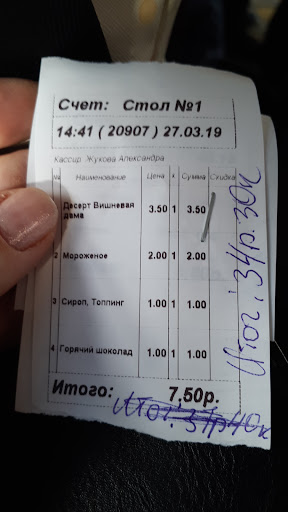 Счет: Стол №1
14:41 ( 20907 ) 27.03.19
Кассир Жукова Александра
№ Наименование Цена Сумма Скидка
Десерт Вишневая дама 3.50 1 3.50
2 Мороженое 2.00 1 2.00
3 Сироп, Топпинг 1.00 1 1.00
4 Горячий шоколад 1.00 1 1.00
Итого: 7,50р.
Итог:
Итог: 34р. 30к